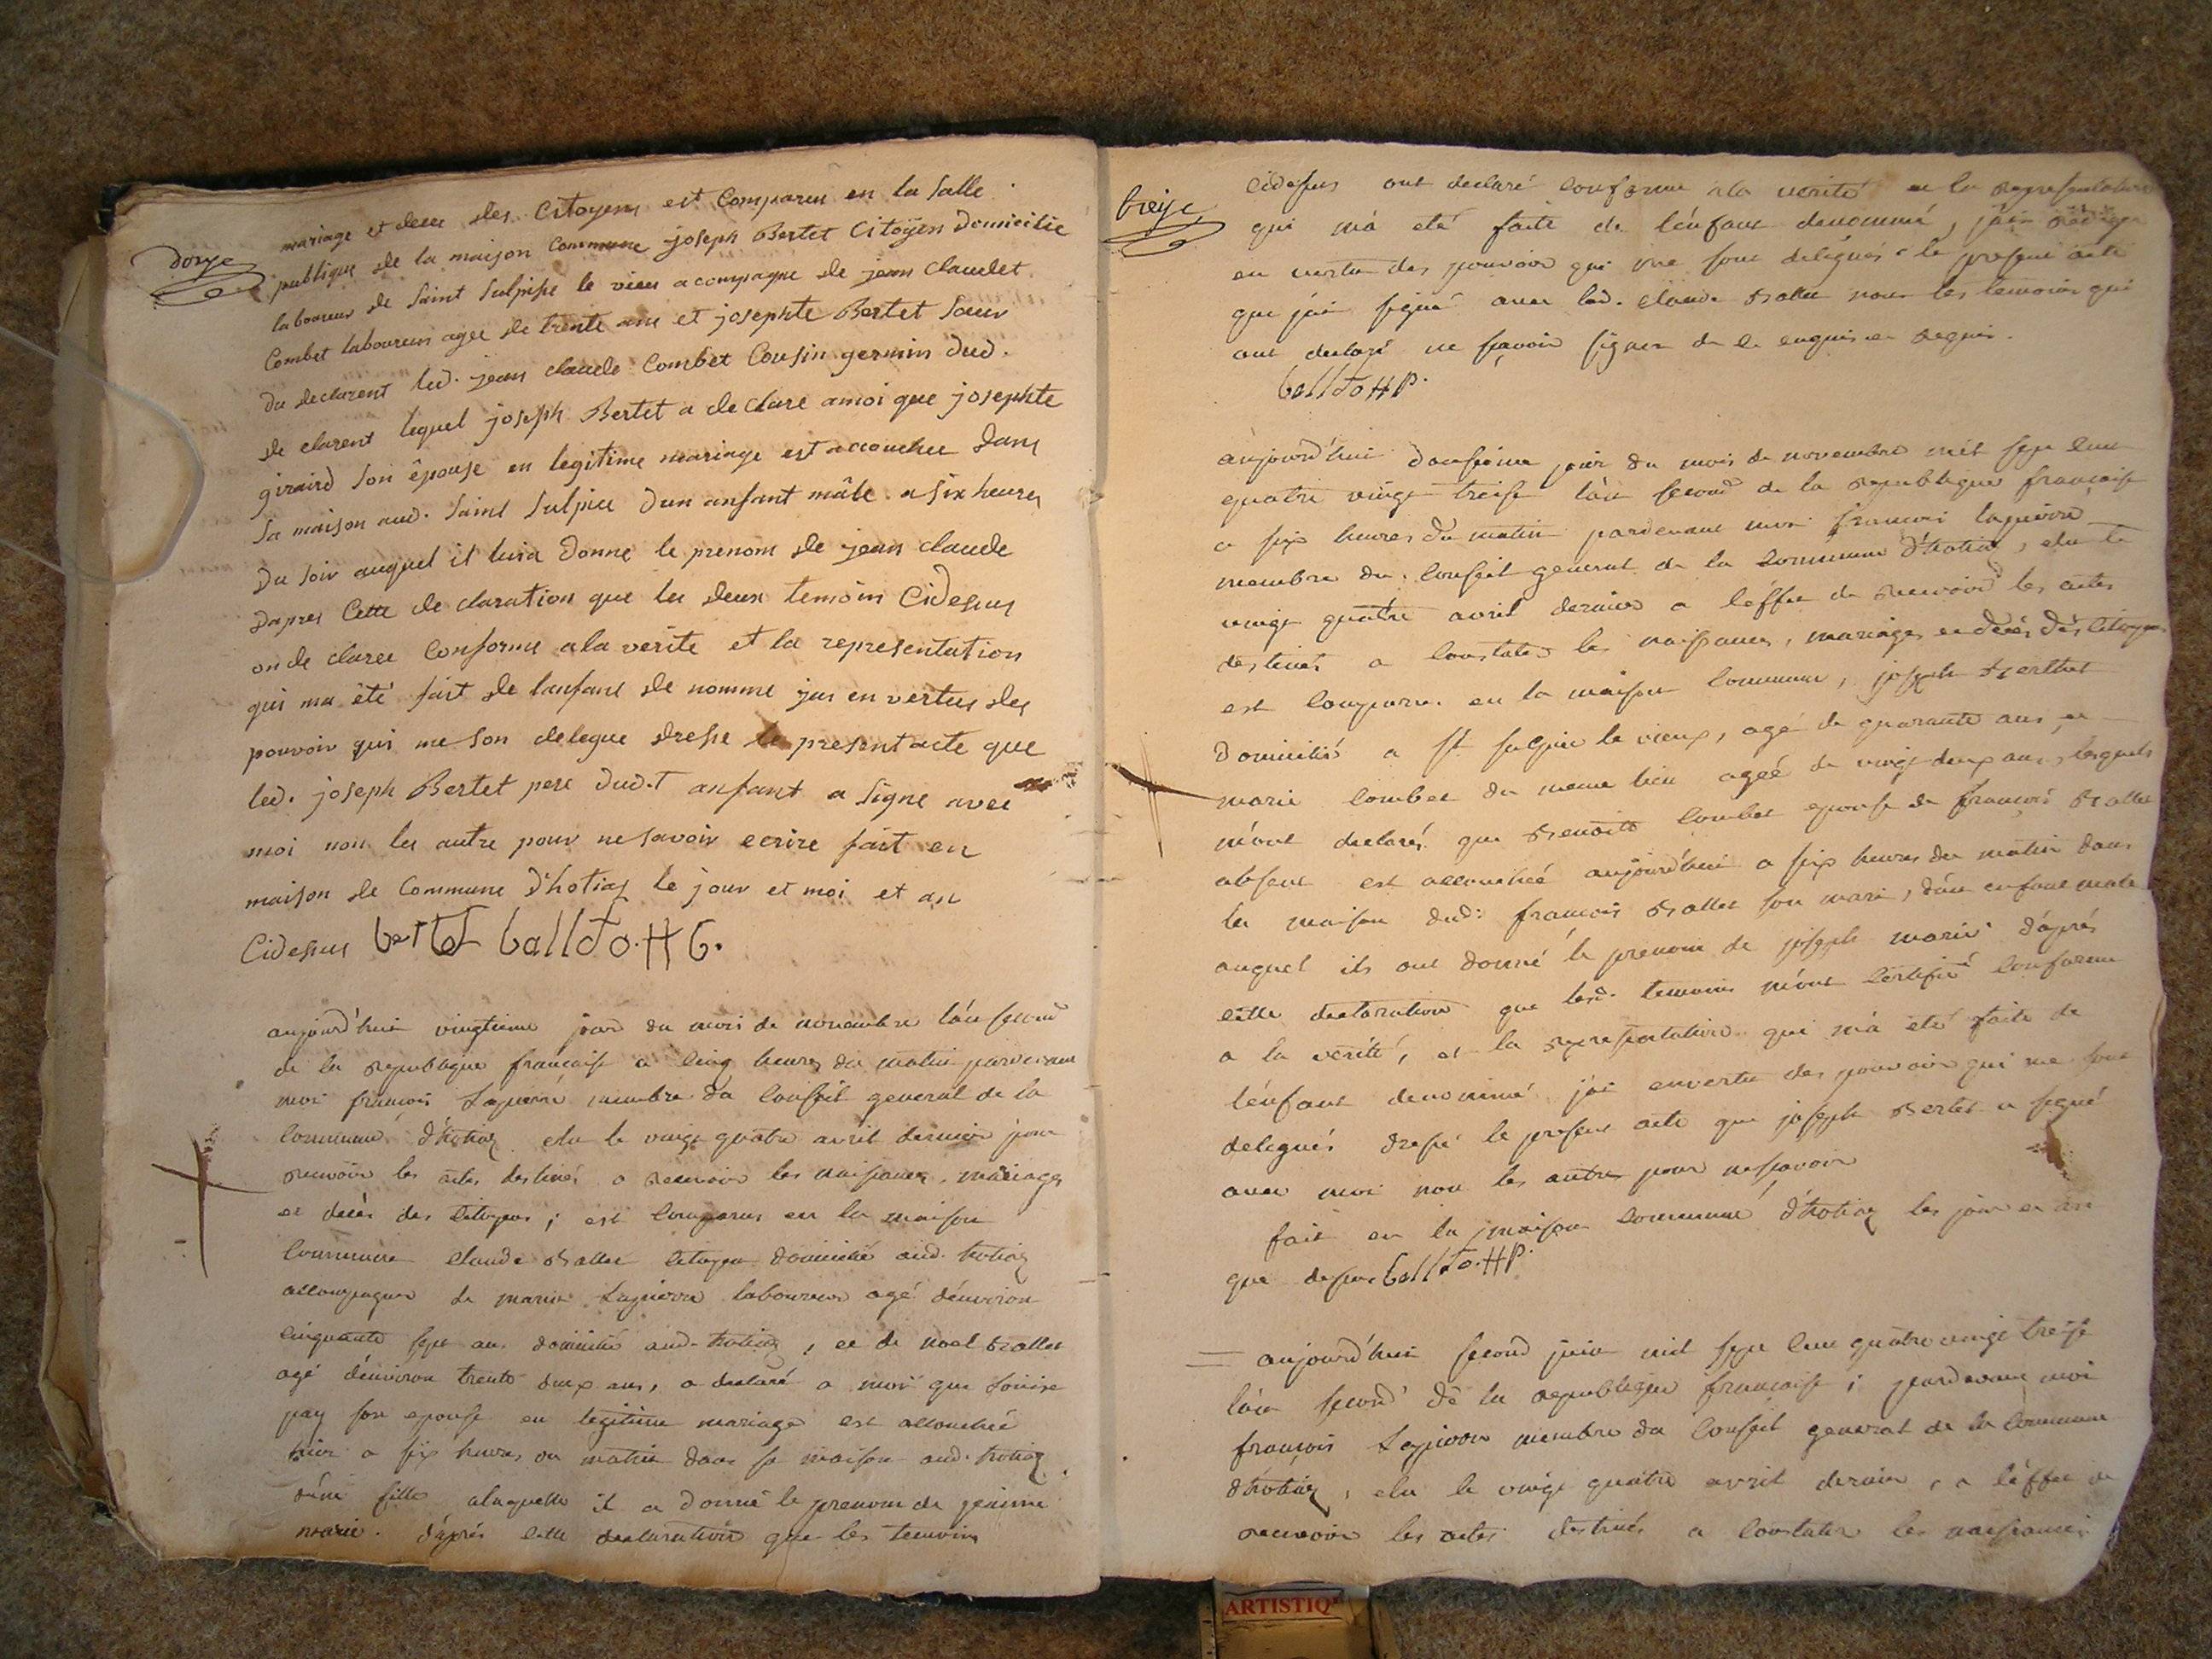 douze
mariage et deces des Citoyens est Comparu en la salle
publique de la maison Commune joseph Bertet Citoyen Domicilie
laboureur de Saint Sulpise le vieu acompagne de jean Claudet
Combet laboureur agee de trente ans et josephte Bertet soeur
du declarent led. jean claude Combet Cousin germin dud.
de clarent lequel joseph Bertet a de clare amoi que josephte
giraird son épouse en legitime mariage est accouchee dans
sa maison aud. saint Sulpice dun anfant mâle a six heures
du soir auquel il luia donne le prenom de jean claude
dapres Cette de claration que les deux temoins Cidesus
on de claree Conforme ala verite et la representation
qui ma été fait de lanfant de nomme jus en vertus des
pouvoir qui me son delegue drese le present acte que
led. joseph Bertet pere dud.t anfant a signe avec
moi non les autre pour ne savoir ecrire fait en
maison de Commune d'hotiaz le jour et moi et an
Cidesus bertet ballo to. H G.
aujourd'hui vingtieme jour du mois de novembre l'an second
de la republique francaise a cinq heures du matin pardevant
moi francois Lapierre membre du Conseil general de la
Commune d'hotiaz elu le vingt quatre avril dernier pour
recevoir les actes destinés a recevoir les naissances, mariages
et decés des Citoyens ; est Comparus en la maison
Commune claude Ballet Citoyen domicilié aud. hotiaz
accompagner de marin Lapierre laboureur agé d'environ
cinquante sept ans domicilié aud. hotiaz, et de noel Ballet
agé d'environ trente deux ans, a declaré a moi que
pay son epouse en legitime mariage est accouchée
hier a six heures du matin dans sa maison aud. hotiaz
d'une fille alaquelle il a donné le prenom de jeanne
marie. d'après cette declaration que les temoins
treize
cidessus ont declaré conforme ala verité et la representation
qui m'a eté faite de l'enfant denommé, j'ai redigé
en vertu des pouvoir qui me sont delegués le present acte
que j'ai signé avec led. claude Ballet non les temoins qui
ont declaré ne sçavoir signer de ce enquis et requis.
ballo to H P.
aujourd'hui douzieme jour du mois de novembre mil sept cent
quatre vingt treise l'an second de la republique francaise
a six heures du matin pardevant moi francois lapierre
membre du Conseil general de la Commune d'hotiaz, elu le
vingt quatre avril dernier a l'éffet de recevoir les actes
destinés a Constater les naissances, mariages et decés des Citoyens
est Comparu en la maison Commune, joseph Berthet
Domicilié a St sulpice le vieux, agé de quarante ans et
marie Combet du meme lieu agée de vingt deux ans, lesquels
m'ont declaré que Benoite Combet epouse de francois Ballet
absent est accouchée aujourd'hui a six heures du matin dans
la maison dud. francois Ballet son mari, d'un enfant male
auquel ils ont donné le prenom de joseph marie d'après
cette declaration que lesd. temoins m'ont certifié conforme
a la verité, et la representation qui m'a eté faite de
l'enfant denommé j'ai envertu des pouvoir qui me sont
delegués dressé le present acte que joseph Bertet a signé
avec moi non les autres pour nesçavoir
fait en la maison Commune d'hotiaz les jour et an
que dessus ballo to. H P.
= aujourd'hui second juin mil sept cent quatre vingt treise
l'an second de la republique francaise ; pardevant moi
francois Lapierre membre du Conseil general de la Commune
d'hotiaz, elu le vingt quatre avril dernier, a l'éffet de
recevoir les actes destinés a Constater les naissances
ARTISTIQ